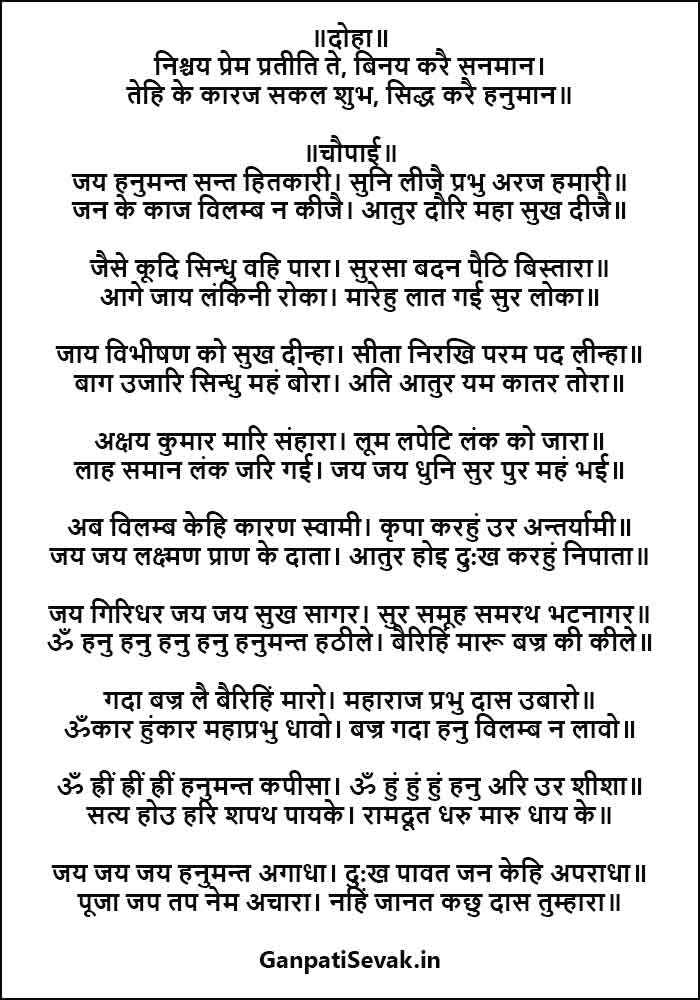 ॥दोहा॥
निश्चय प्रेम प्रतीति ते, बिनय करै सनमान।
तेहि के कारज सकल शुभ, सिद्ध करै हनुमान॥
॥चौपाई॥
जय हनुमन्त सन्त हितकारी। सुनि लीजै प्रभु अरज हमारी॥
जन के काज विलम्ब न कीजै। आतुर दौरि महा सुख दीजै॥
जैसे कूदि सिन्धु वहि पारा। सुरसा बदन पैठि बिस्तारा॥
आगे जाय लंकिनी रोका। मारेहु लात गई सुर लोका॥
जाय विभीषण को सुख दीन्हा। सीता निरखि परम पद लीन्हा॥
बाग उजारि सिन्धु महं बोरा। अति आतुर यम कातर तोरा॥
अक्षय कुमार मारि संहारा। लूम लपेटि लंक को जारा॥
लाह समान लंक जरि गई। जय जय धुनि सुर पुर महं भई॥
अब विलम्ब केहि कारण स्वामी। कृपा करहुं उर अन्तर्यामी॥
जय जय लक्ष्मण प्राण के दाता। आतुर होइ दुःख करहुं निपाता॥
जय गिरिधर जय जय सुख सागर। सुर समूह समरथ भटनागर॥
ॐ हनु हनु हनु हनु हनुमन्त हठीले। बैरिहिं मारू बज्र की कीले॥
गदा बज्र लै बैरिहिं मारो। महाराज प्रभु दास उबारो॥
ॐकार हुंकार महाप्रभु धावो। बज्र गदा हनु विलम्ब न लावो॥
ॐ ह्रीं ह्रीं ह्रीं हनुमन्त कपीसा। ॐ हुं हुं हुं हनु अरि उर शीशा॥
सत्य होउ हरि शपथ पायके। रामदूत धरु मारु धाय के॥
जय जय जय हनुमन्त अगाधा। दुःख पावत जन केहि अपराधा॥
पूजा जप तप नेम अचारा। नहिं जानत कछु दास तुम्हारा॥
GanpatiSevak.in